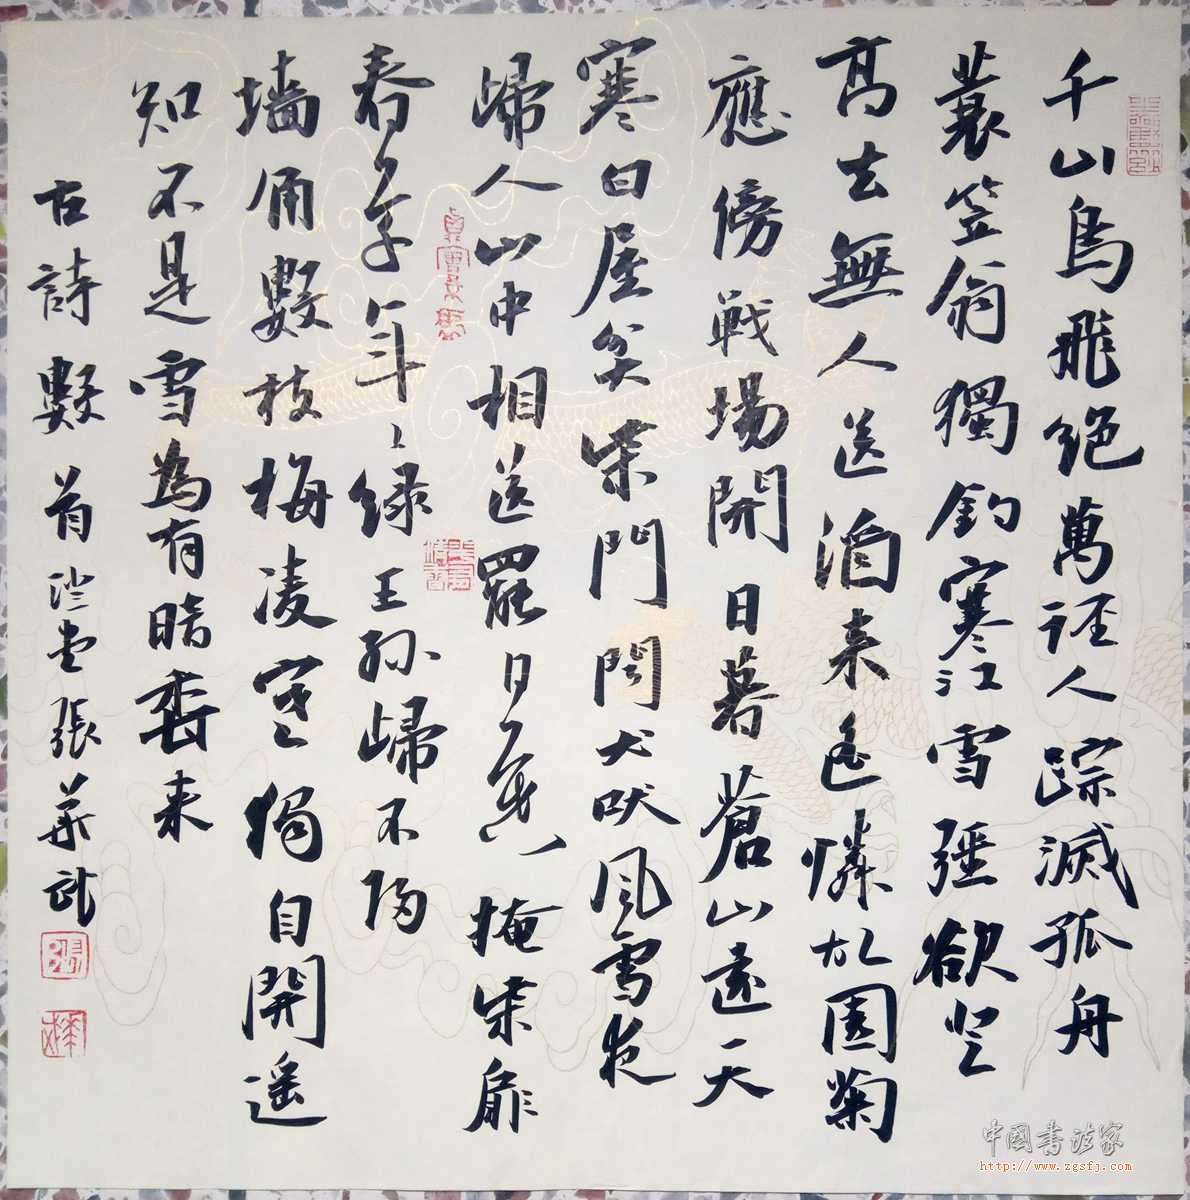 千山鸟飛絕萬径人踪滅孤舟
蓑笠翁獨釣寒江雪強欲登
髙去無人送酒来遥憐故園菊
應傍戦場開日暮蒼山遠天
寒白屋貧柴門聞犬吠風雪夜
歸人山中相送罷日暮掩柴扉
春草年々绿王孙歸不归
墙角數枝梅凌寒獨自開遥
知不是雪為有暗香来
古詩數首 堂張華武
中國書法家
http://www.zgsfj.com